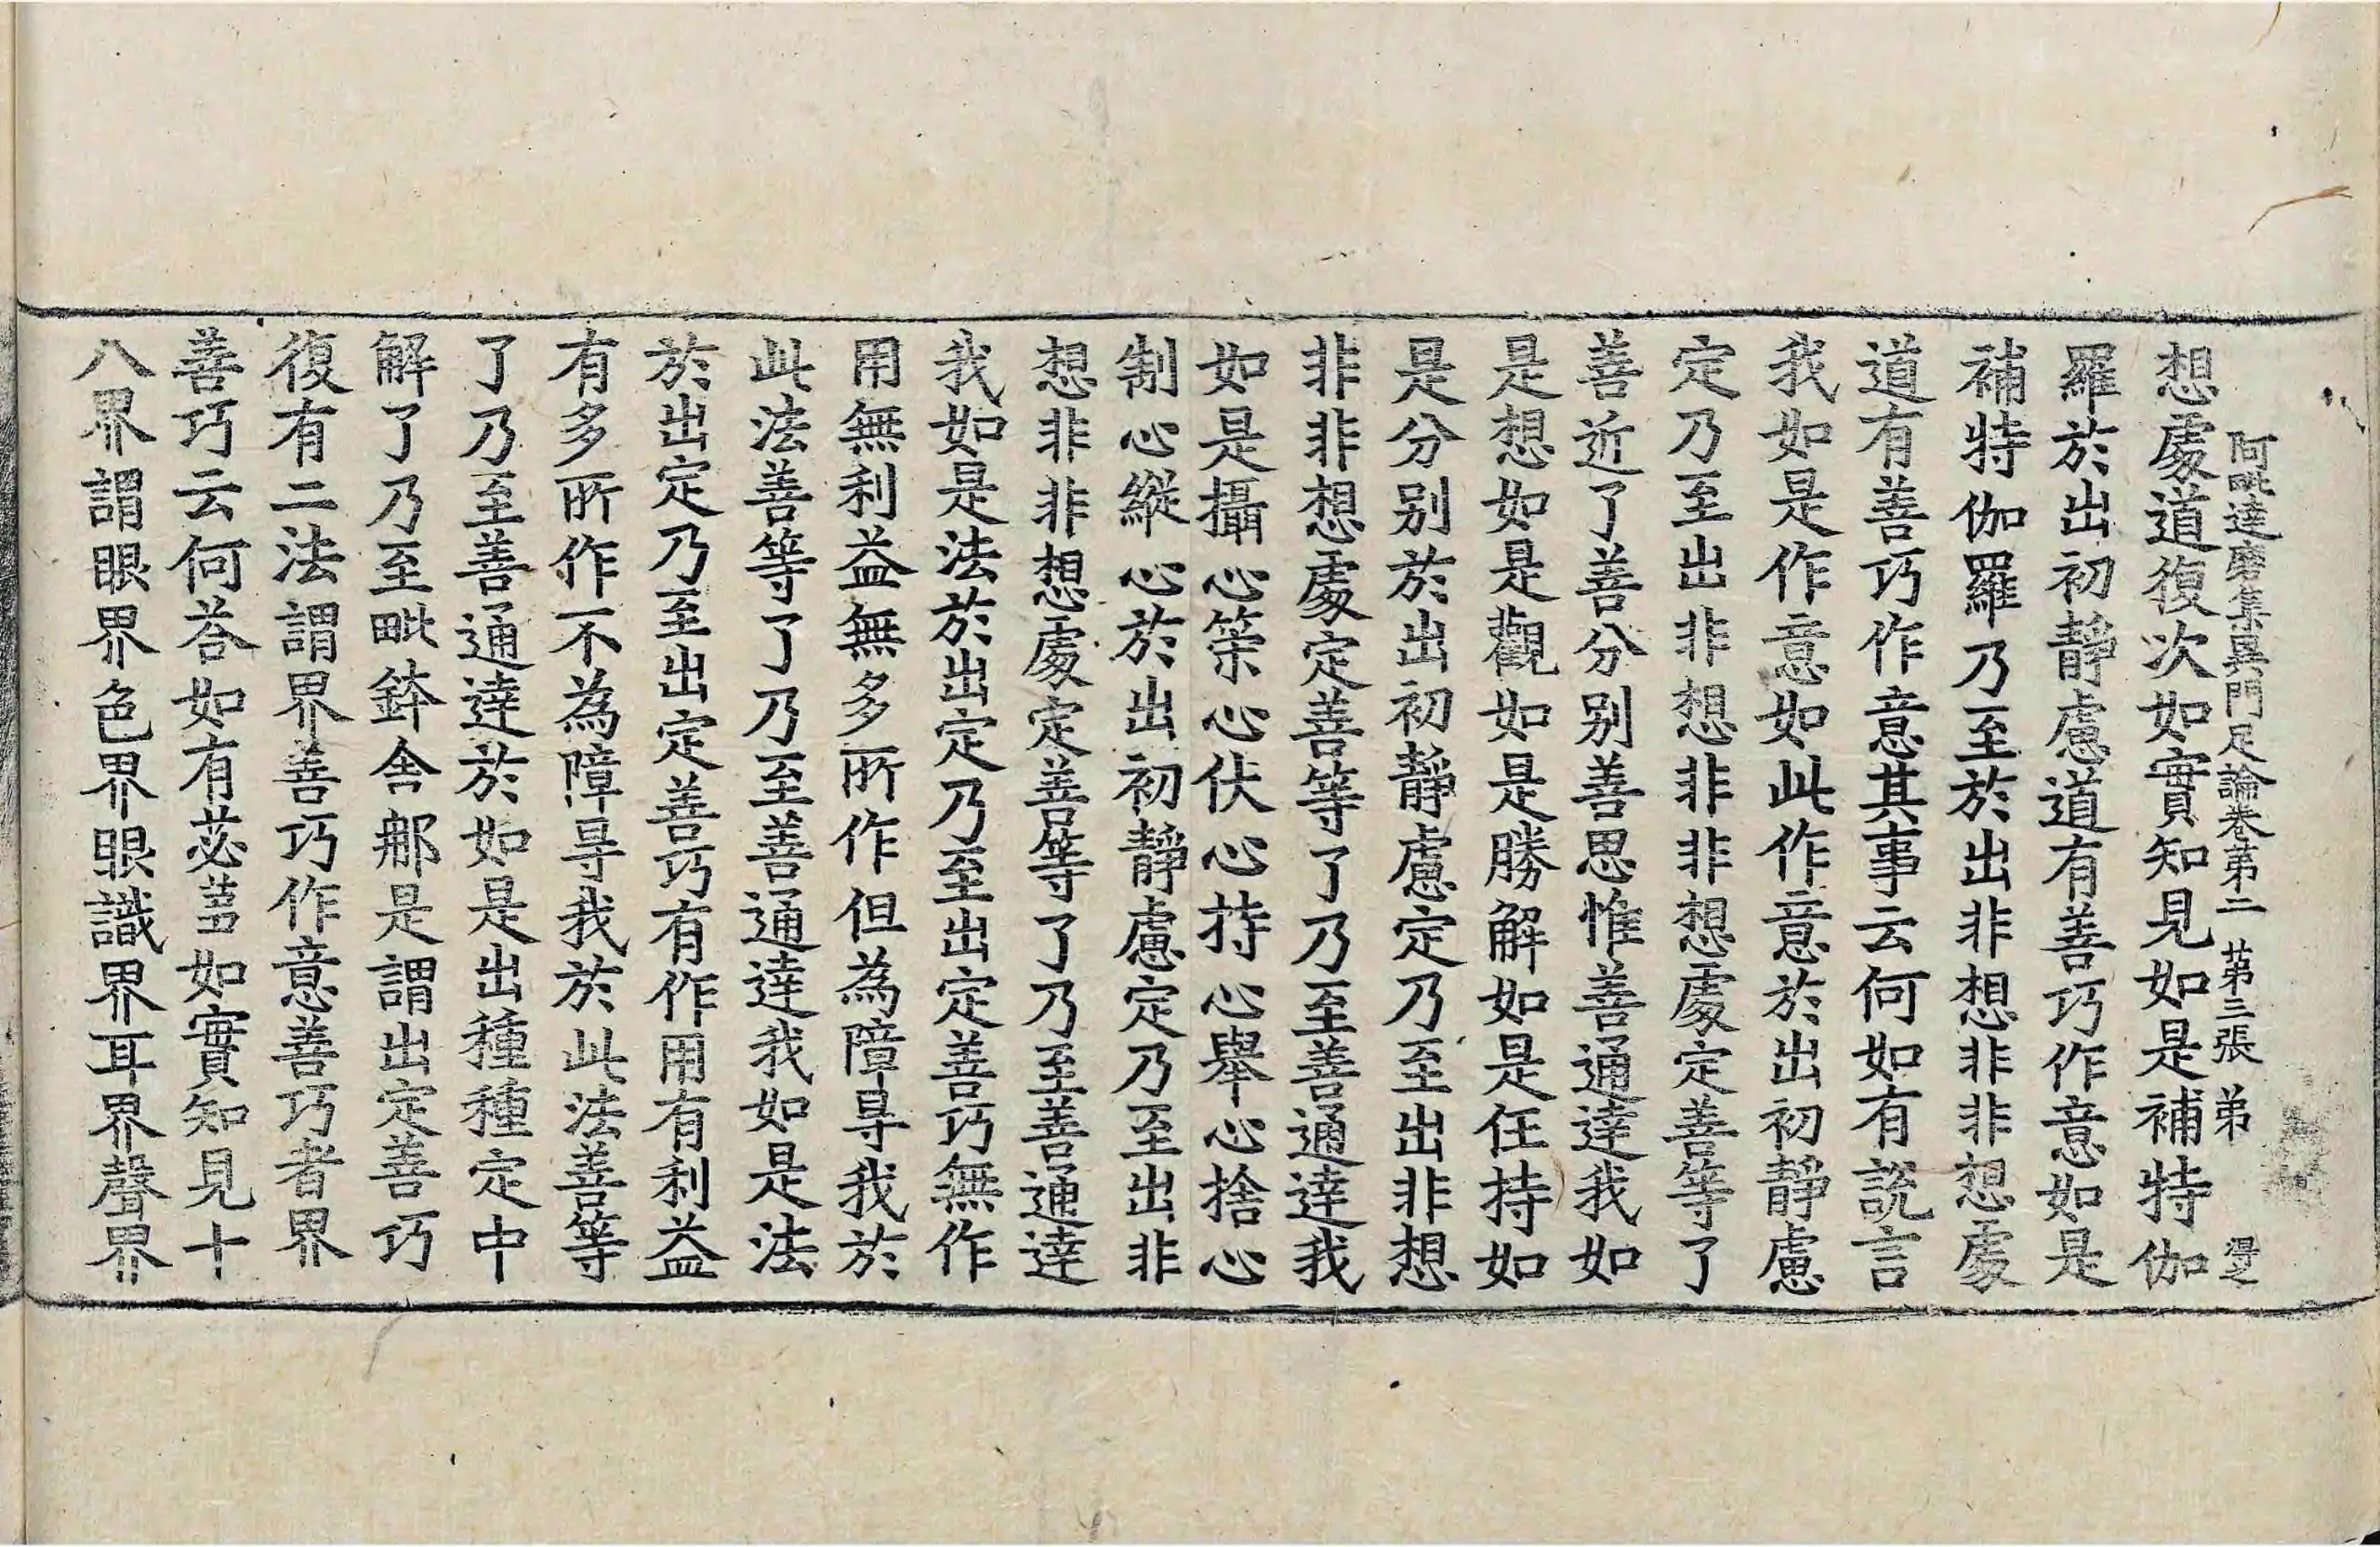 阿毗達磨集異門足論卷苐二 苐三張 弟
想處道復次如實知見如是補特伽
羅於出初靜慮道有善巧作意如是
補特伽羅乃至於出非想非非想處
道有善巧作意其事云何如有說言
我如是作意如此作意於出初靜慮
定乃至出非想非非想處定善等了
善近了善分別善思惟善通達我如
是想如是觀如是勝解如是任持如
是分別於出初靜慮定乃至出非想
非非想處定善等了乃至善通達我
如是攝心策心伏心持心舉心捨心
制心縱心於出初靜慮定乃至出非
想非非想處定善等了乃至善通達
我如是法於出定乃至出定善巧無作
用無利益無多所作但為障㝵我於
此法善等了乃至善通達我如是法
於出定乃至出定善巧有作用有利益
有多所作不為障㝵我於此法善等
了乃至善通達於如是出種種定中
解了乃至毗鉢舍那是謂出定善巧
復有二法謂界善巧作意善巧者界
善巧云何荅如有苾蒭如實知見十
八界謂眼界色界眼識界耳界聲界